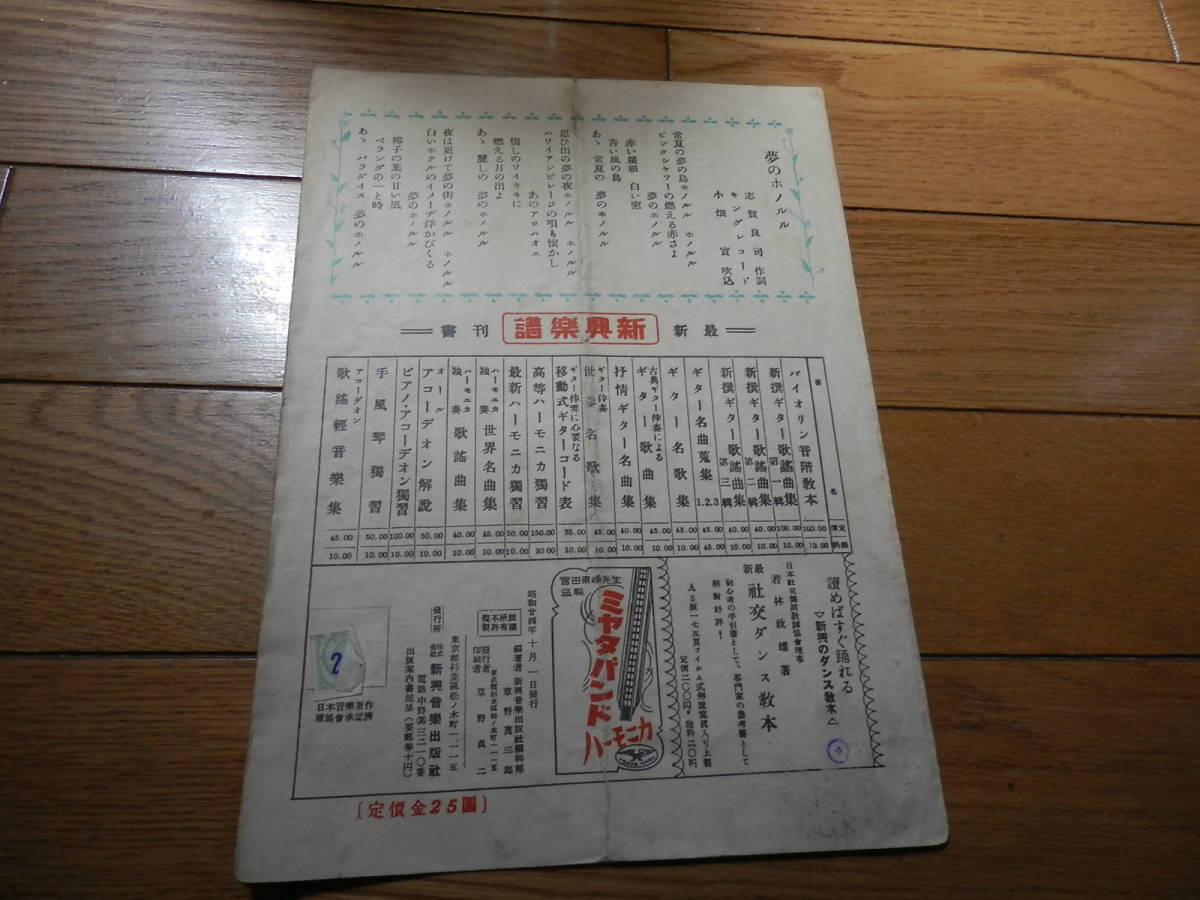 夢のホノルル
志賀良司作詞
キングレコード
小畑實吹込
常夏の夢の島ホノルル ホノルル
ピンクシャワーの燃える赤さよ
夢のホノルル
赤い屋根 白い窓
青い風の島
あゝ 常夏の 夢のホノルル
思ひ出の夢の夜ホノルル ホノルル
ハワイアンビレージの唄も懐かし
あのアロハオエ
燃える月の出よ
あゝ 麗しの 夢のホノルル
夜は更けて夢の街ホノルル ホノルル
白いホテルのイメーヂ浮かびくる
夢のホノルル
椰子の葉の甘い風
ベランダの一と時
あゝ パラダイス 夢のホノルル
最新 新興樂譜 刊書
書名
定價
送料
バイオリン音階教本 100.00 10.00
新撰ギター歌謠曲集 第一輯 100.00 10.00
新撰ギター歌謠曲集 第二輯 40.00 10.00
新撰ギター歌謠曲集 第三輯 40.00 10.00
ギター名曲蒐集 1.2.3 45.00
ギター名歌集 45.00 10.00
古典ギター伴奏による ギター歌曲集 45.00 10.00
抒情ギター名曲集 40.00 10.00
ギター伴奏 世界名歌集 45.00 10.00
ギター伴奏に必要なる 移動式ギターコード表 35.00 10.00
高等ハーモニカ獨習 150.00 20.00
最新ハーモニカ獨習 50.00 10.00
ハーモニカ獨奏 世界名曲集 40.00 10.00
ハーモニカ獨奏 歌謠曲集 40.00 10.00
オール アコーデオン解說 50.00 10.00
ピアノ・アコーデオン獨習 100.00 10.00
手風琴獨習 50.00 10.00
アコーデオン 歌謠輕音樂集 45.00 10.00
讀めばすぐ踊れる
▽新興のダンス教本△
日本社交舞踏教師協會理事
若林政雄著
最新 社交ダンス教本
初心者の手引書として。專門家の參考書として
絕對好評!
A5版一七五頁フイルム式解說寫眞入り上製
定價二〇〇円・送料二〇円
宮田東峰先生
監製
ミヤタバンド
ハーモニカ
TRADE MARK
昭和廿四年十月一日發行
版權所有
不許複製
編著者 新興音樂出版社編輯部
草野茂三郎
東京都杉並區松ノ木町一一一五
發行者
印刷者
草野貞二
東京都杉並區松ノ木町一一一五
發行所
株式會社 新興音樂出版社
電話中野(38)三二一〇番
出版案內書部呈(要郵券十円)
2
日本音樂著作
權協會承認濟
〔定價金25圓〕